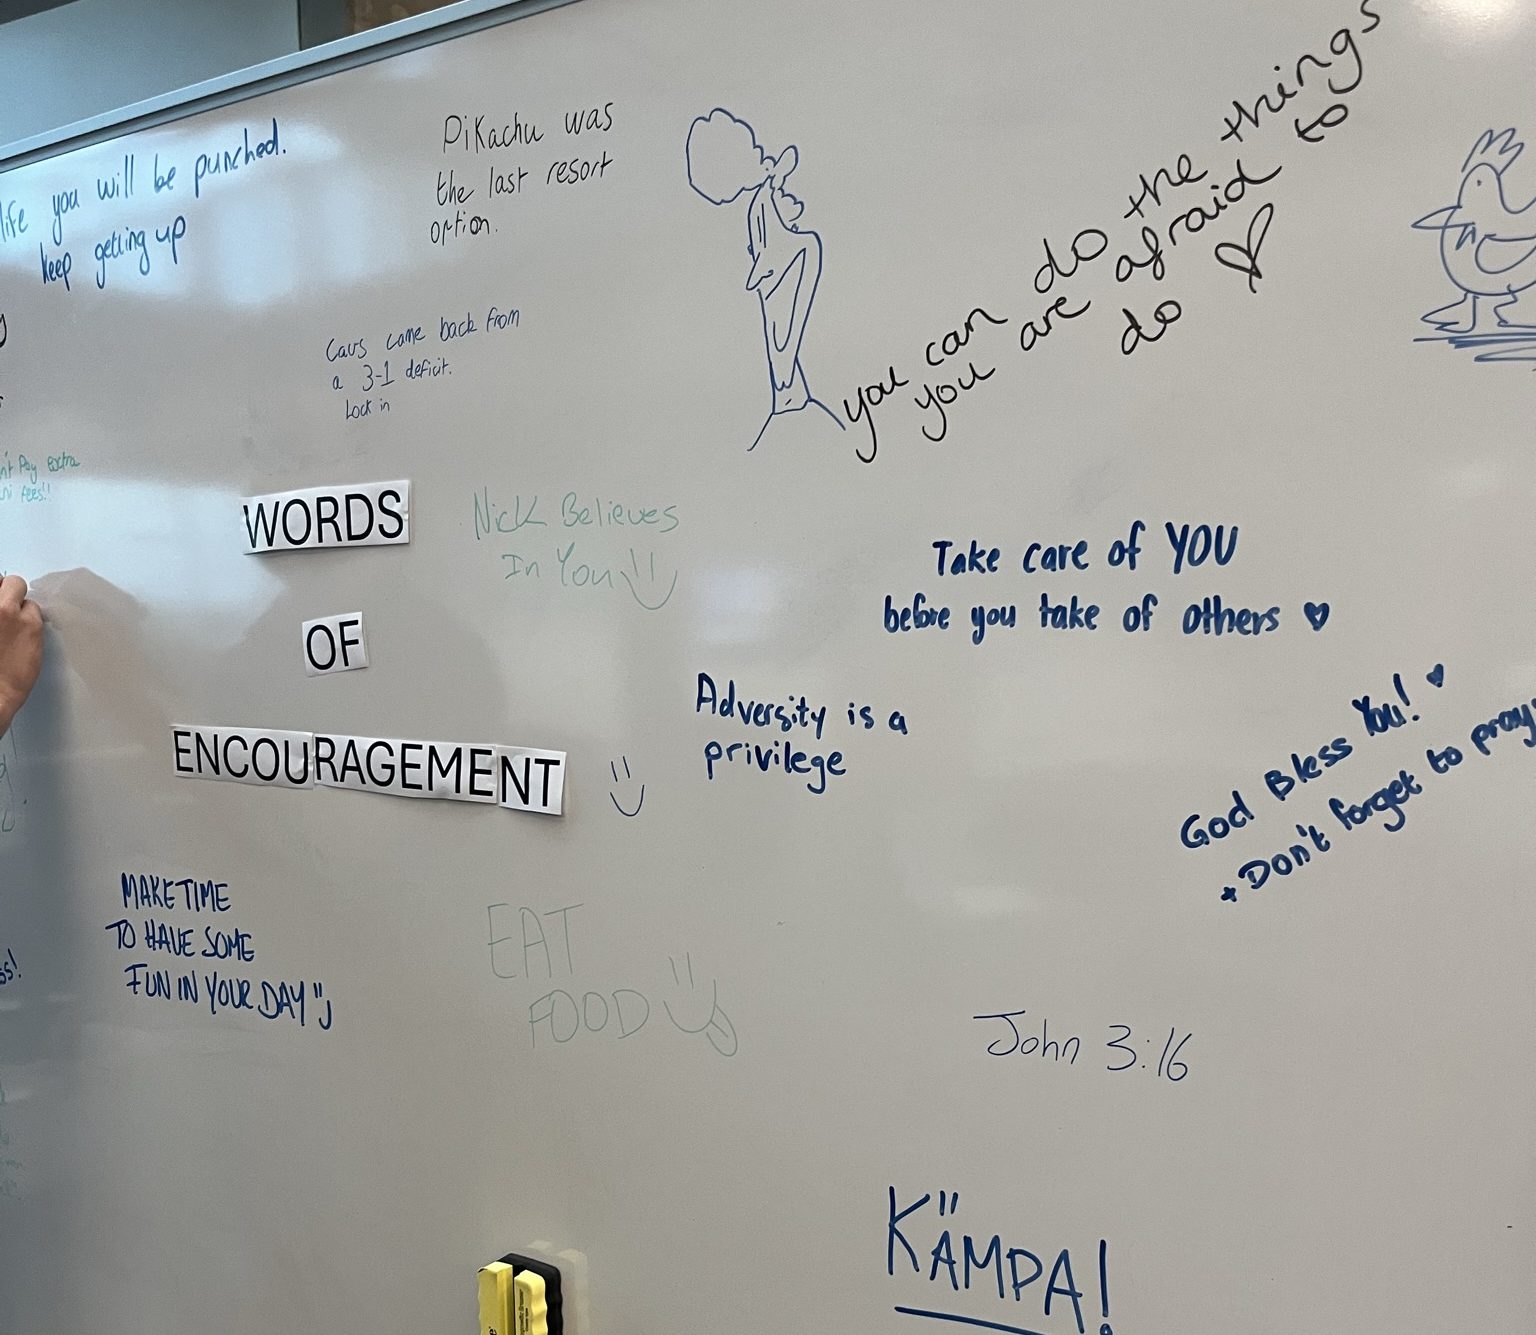 life you will be punched.
keep getting up
Pikachu was
the last resort
option.
you can do the things
you are afraid to
do
Cavs came back from
a 3-1 deficit.
Lock in
Pay extra
fees!!
WORDS
OF
ENCOURAGEMENT
Nick Believes
In You
Take care of YOU
before you take of others
Adversity is a
privilege
God Bless You!
+ Don't forget to pray
MAKE TIME
TO HAVE SOME
FUN IN YOUR DAY
EAT
FOOD
John 3:16
KÄMPA!